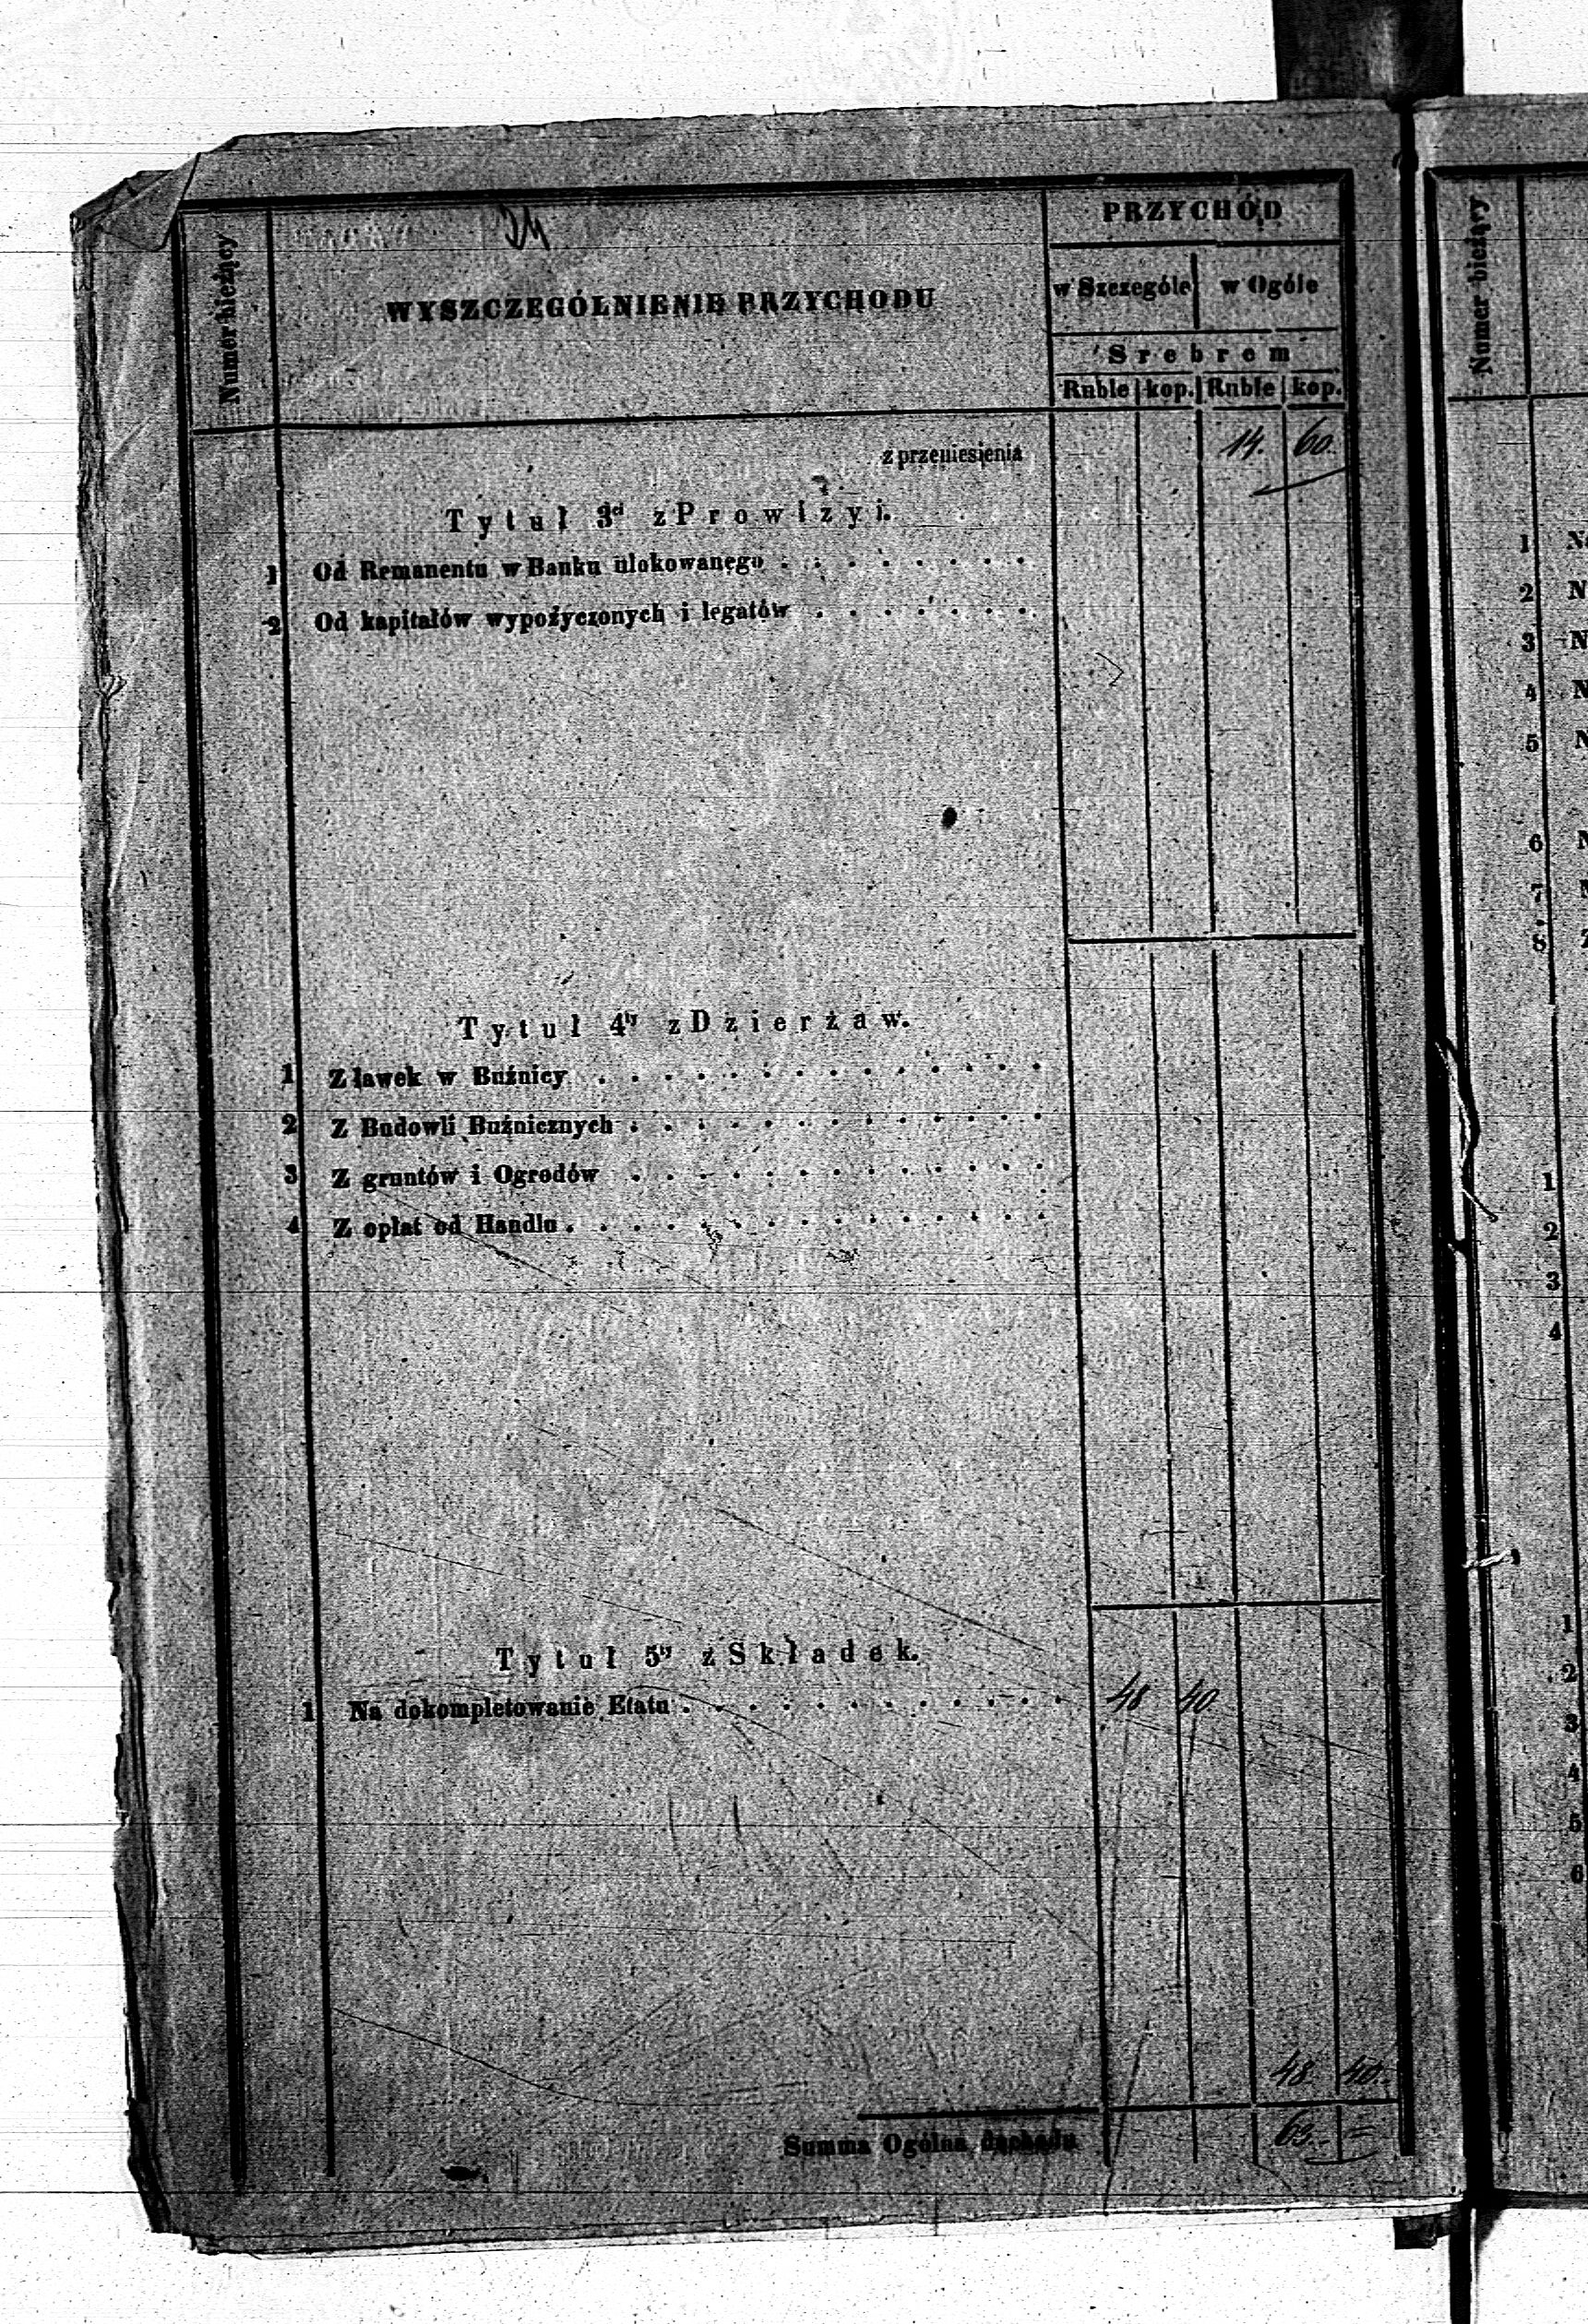 PRZYCHÓD
Numer bieżący
WYSZCZEGÓLNIENIE PRZYCHODU
w Szczególe w Ogóle
Srebrem
Ruble kop. Ruble kop.
z przeniesienia 14. 60.
Tytuł 3d z Prowizyi.
1 Od Remanentu w Banku ulokowanego
2 Od kapitałów wypożyczonych i legatów
Tytuł 4ty z Dzierżaw.
1 Z ławek w Buźnicy
2 Z Budowli Buźnicznych
3 Z gruntów i Ogrodów
4 Z opłat od Handlu
Tytuł 5ty z Składek.
1 Na dokompletowanie Etatu 48 40
48 40.
Summa Ogólna dochodu 63. =
Numer bieżący
1
2 N
3 N
4 N
5 N
6 N
7
8
1
2
3
4
1
2
3
4
5
6